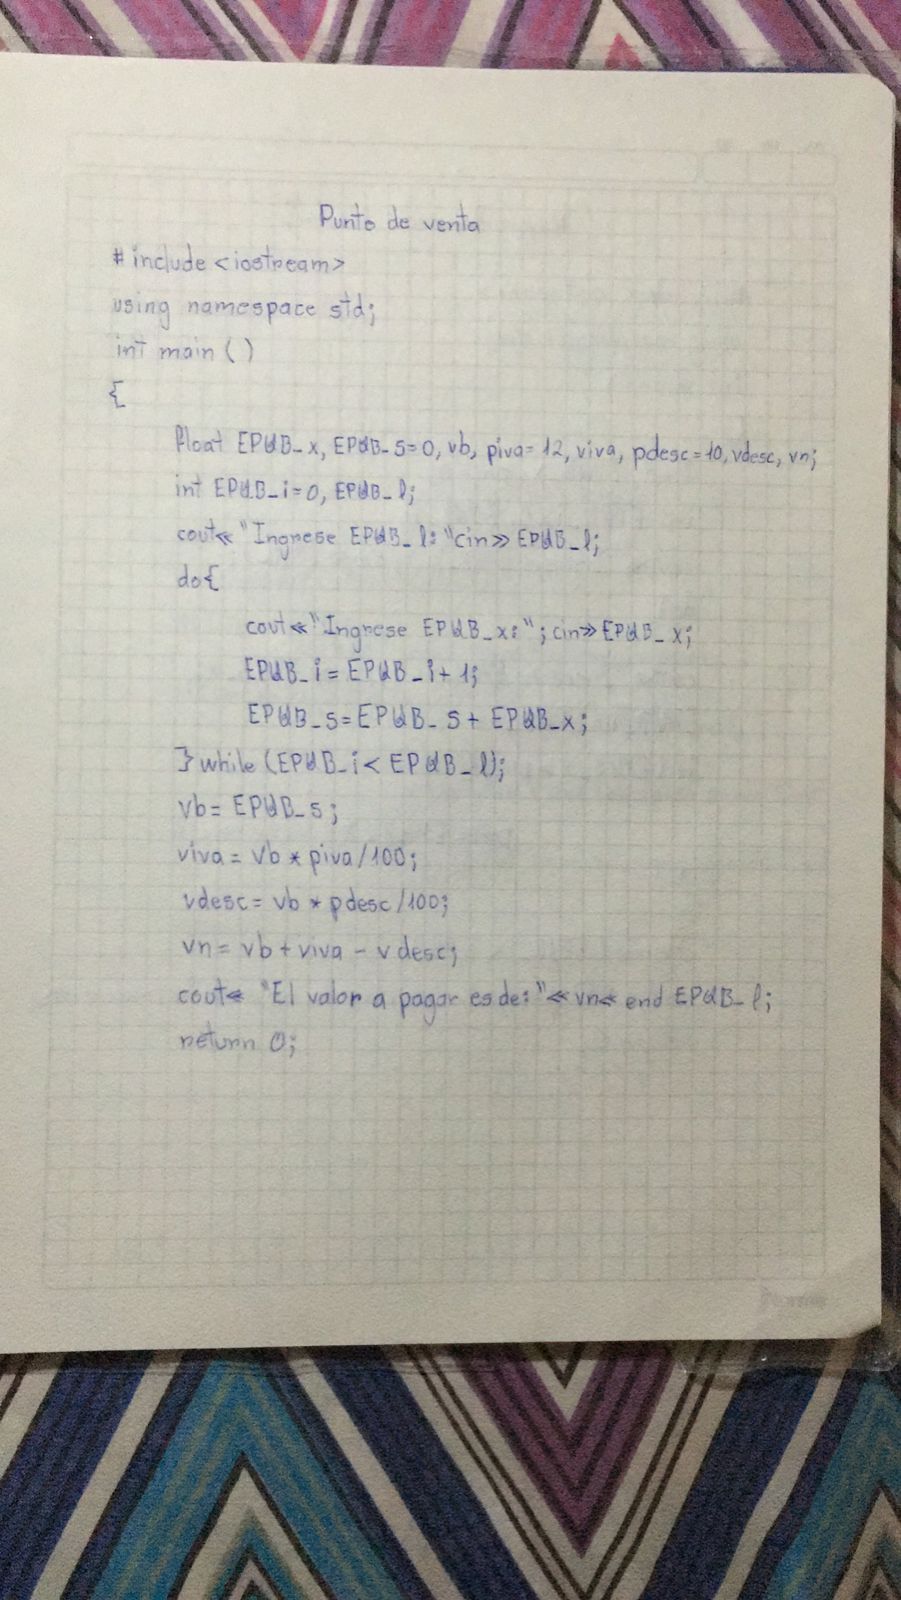 Punto de venta
# include <iostream>
using namespace std;
int main ( )
{
float EPWB_x, EPWB_s=0, vb, piva=12, viva, pdesc=10, vdesc, vn;
int EPWB_i=0, EPWB_l;
cout<<"Ingrese EPWB_l: "cin>> EPWB_l;
do{
cout<<"Ingrese EPWB_x: "; cin>> EPWB_x;
EPWB_i = EPWB_i + 1;
EPWB_s= EPWB_s + EPWB_x;
} while (EPWB_i < EPWB_l);
vb= EPWB_s;
viva = vb * piva/100;
vdesc= vb * pdesc/100;
vn= vb+viva - vdesc;
cout<< "El valor a pagar es de: "<< vn<< end EPWB_l;
return 0;